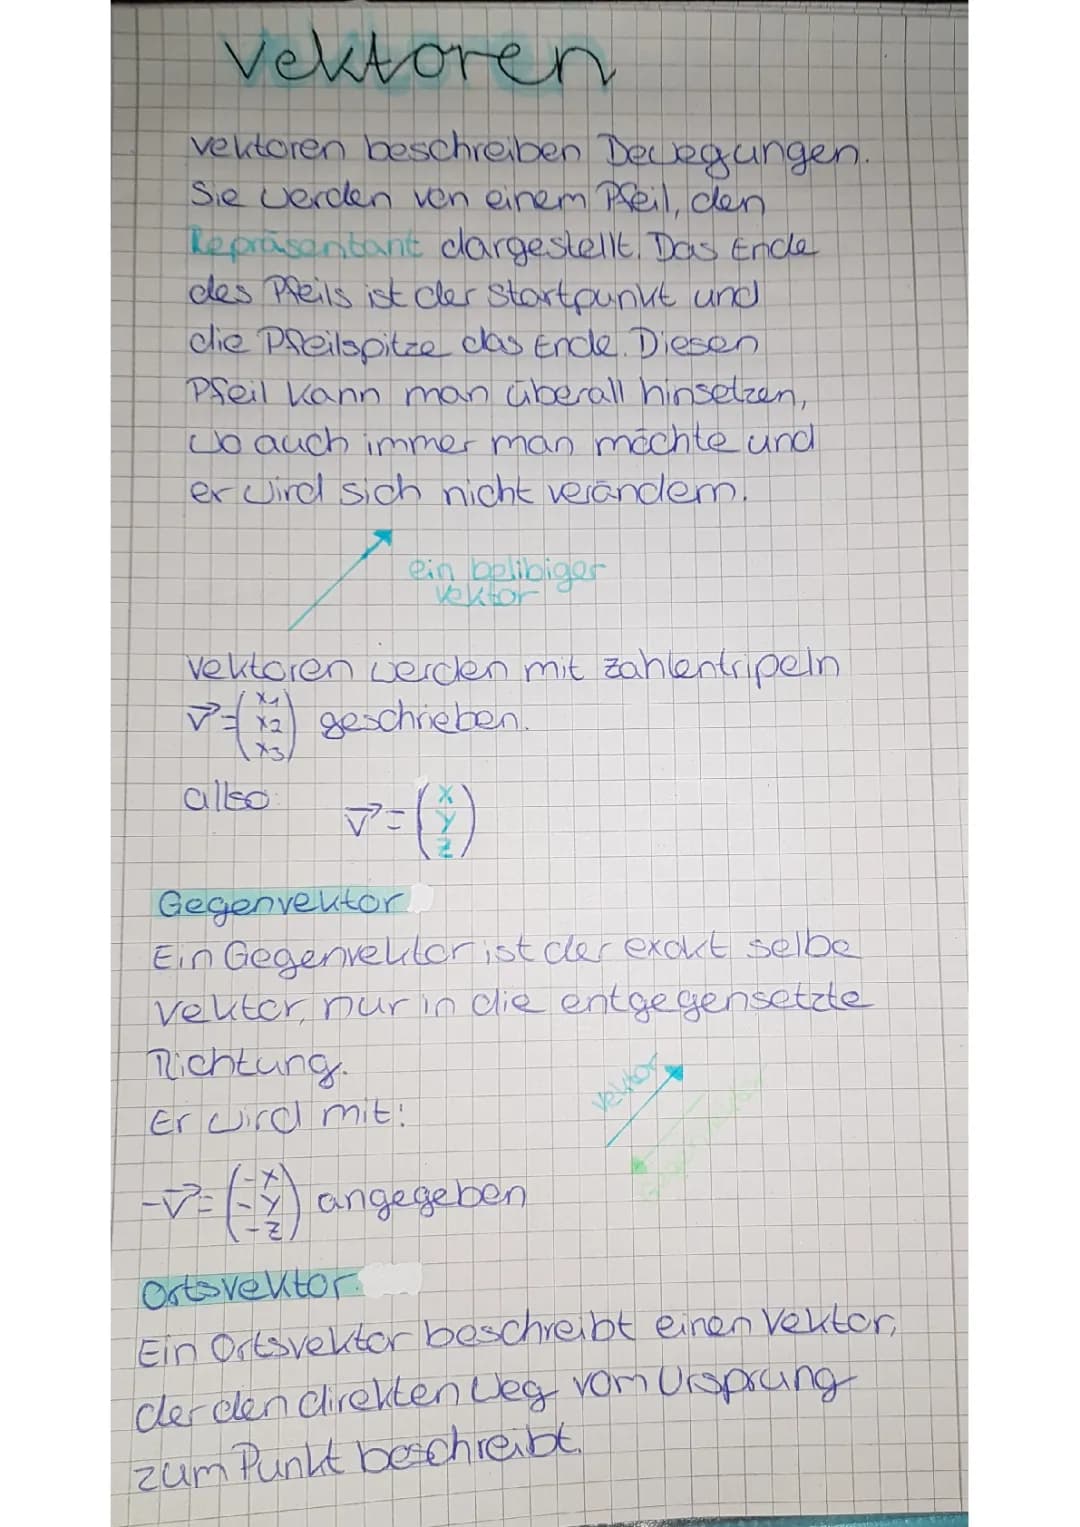 Vektoren
Vektoren beschreiben Bewegungen.
Sie werden von einem Pfeil, den
Repräsentant dargestellt. Das Ende
des Pfeils ist der Startpunkt und
die Pfeilspitze das Ende. Diesen
Pfeil kann man überall hinsetzen,
wo auch immer man möchte und
er wird sich nicht verändern.
ein belibiger
Vektor
Vektoren werden mit Zahlentripeln
v⃗=(x1 x2 x3) geschrieben.
also: v⃗=(x y z)
Gegenvektor
Ein Gegenvektor ist der exakt selbe
Vektor, nur in die entgegensetzte
Richtung.
Vektor
Er wird mit:
-v⃗=(-x -y -z) angegeben
Ortsvektor
Ein Ortsvektor beschreibt einen Vektor,
der den direkten Weg vom Ursprung
zum Punkt beschreibt.